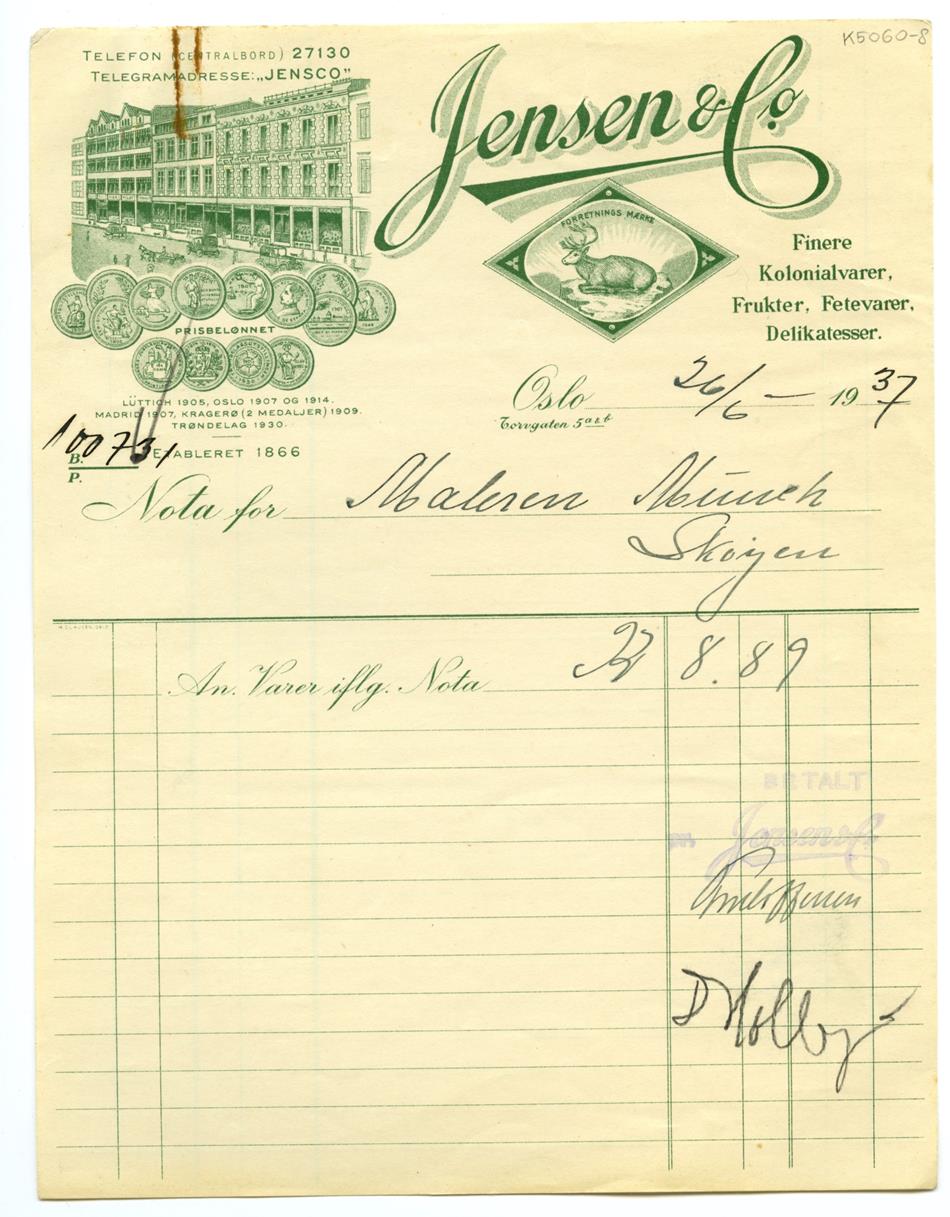 K5060-8
TELEFON (CENTRALBORD) 27130
TELEGRAMADRESSE: „JENSCO"
Jensen & Co.
FORRETNINGS MÆRKE
Finere
Kolonialvarer,
Frukter, Fetevarer,
Delikatesser.
PRISBELØNNET
LÜTTICH 1905, OSLO 1907 OG 1914.
MADRID 1907, KRAGERØ (2 MEDALJER) 1909.
TRØNDELAG 1930.
ETABLERET 1866
Oslo 26/6 - 1937
Torvgaten 5 a & b
100731
B.
P.
Nota for Maleren Munch
Skøyen
An. Varer iflg. Nota Kr 8.89
BETALT
Jensen & Co.